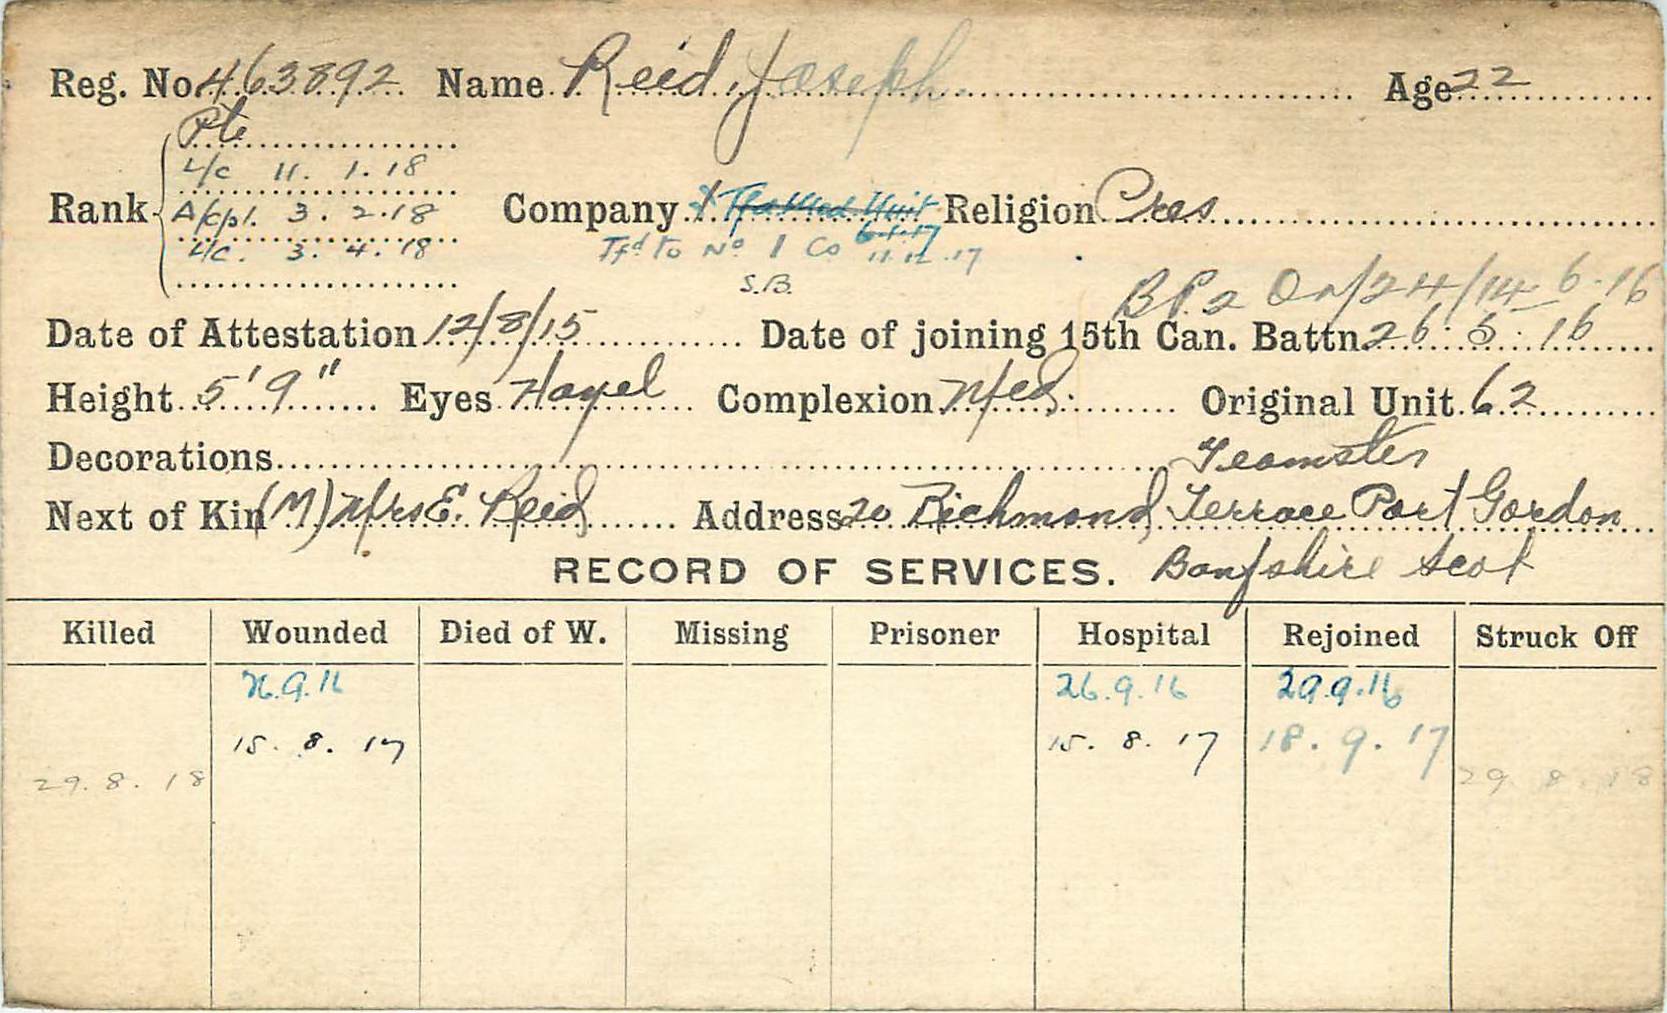 Reg. No 463892 Name Reid, Joseph Age 22
Pte
L/c 11. 1. 18
Rank A/Cpl. 3. 2. 18 Company 1 Tfd Med. Unit Religion Pres
6.1.17
L/c. 3. 4. 18 Tfd to No 1 Co 11.12.17
S.B.
B.P.2 O 24/14-6-16
Date of Attestation 12/8/15 Date of joining 15th Can. Battn. 26. 5. 16
Height 5'9" Eyes Hazel Complexion Med. Original Unit 62
Decorations Teamster
Next of Kin (M) Mrs E. Reid Address 20 Richmond Terrace Port Gordon
RECORD OF SERVICES. Banfshire Scot
Killed Wounded Died of W. Missing Prisoner Hospital Rejoined Struck Off
26.9.16 26.9.16 29.9.16
15. 8. 17 15. 8. 17 18. 9. 17
29. 8. 18 29 8. 18